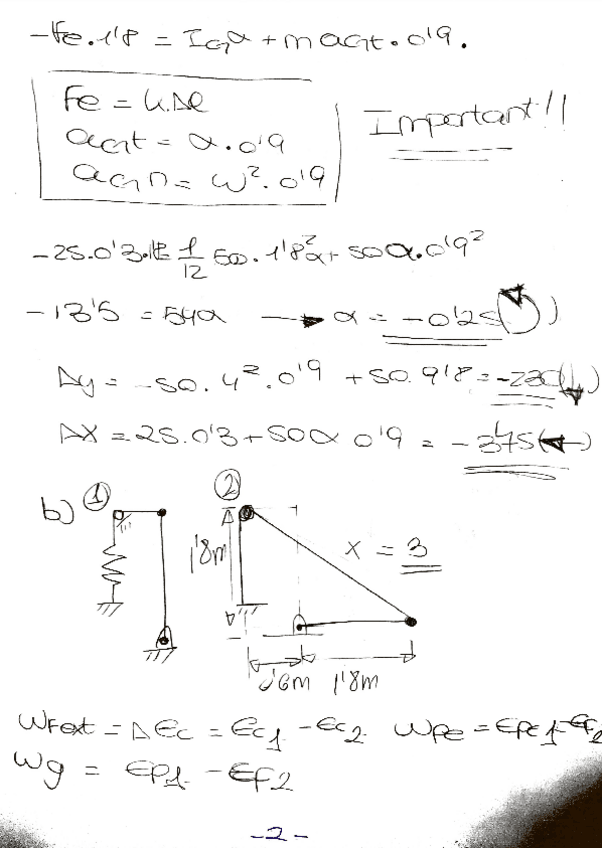 -Fe.1'8 = IGα + m aGt. 0'9.
Fe = K.Δl
aGt = α.0'9
aGn = ω². 0'9
Important!!
-25.0'3.1'8 = 1/12 50. 1'8²α + 50α.0'9²
-13'5 = 54α → α = -0'25 ( )
Ay = -50. 4². 0'9 + 50. 9'8 = -230 (↓)
AX = 25.0'3 + 50α 0'9 = -3'75 (←)
b) 1 2
1'8m
x = 3
0'6m 1'8m
WFext = ΔEc = Ec1 - Ec2 WFe = Epe1 - Ef2
Wg = Ep1 - Ef2
-2-